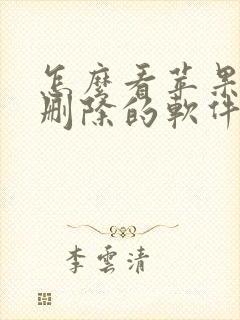 怎麼看苹果
刪除的軟件
李雲清